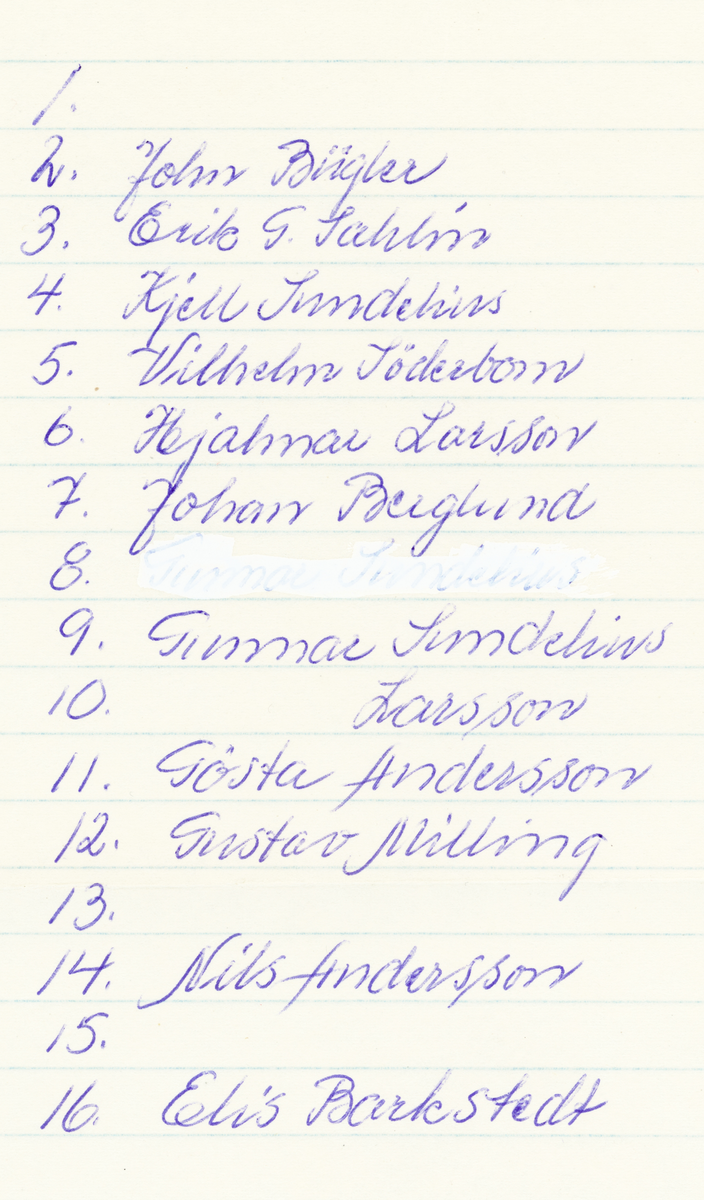 1.
2. John Bügler
3. Erik G. Sahlin
4. Kjell Sundelius
5. Vilhelm Söderbom
6. Hjalmar Larsson
7. Johan Berglund
8. Gunnar Sundelius
9. Gunnar Sundelius
10. Larsson
11. Gösta Andersson
12. Gustav Milling
13.
14. Nils Andersson
15.
16. Elis Barkstedt